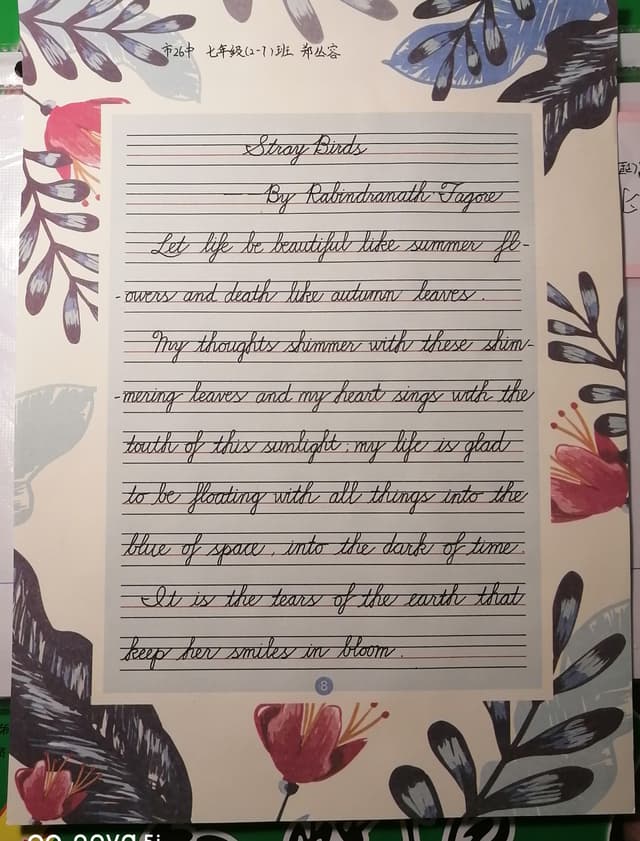 市26中 七年级(2-1)班 郑丛容
Stray Birds
——By Rabindranath Tagore
Let life be beautiful like summer fl-
-owers and death like autumn leaves.
My thoughts shimmer with these shim-
-mering leaves and my heart sings with the
touth of this sunlight; my life is glad
to be floating with all things into the
blue of space, into the dark of time.
It is the tears of the earth that
keep her smiles in bloom.
8